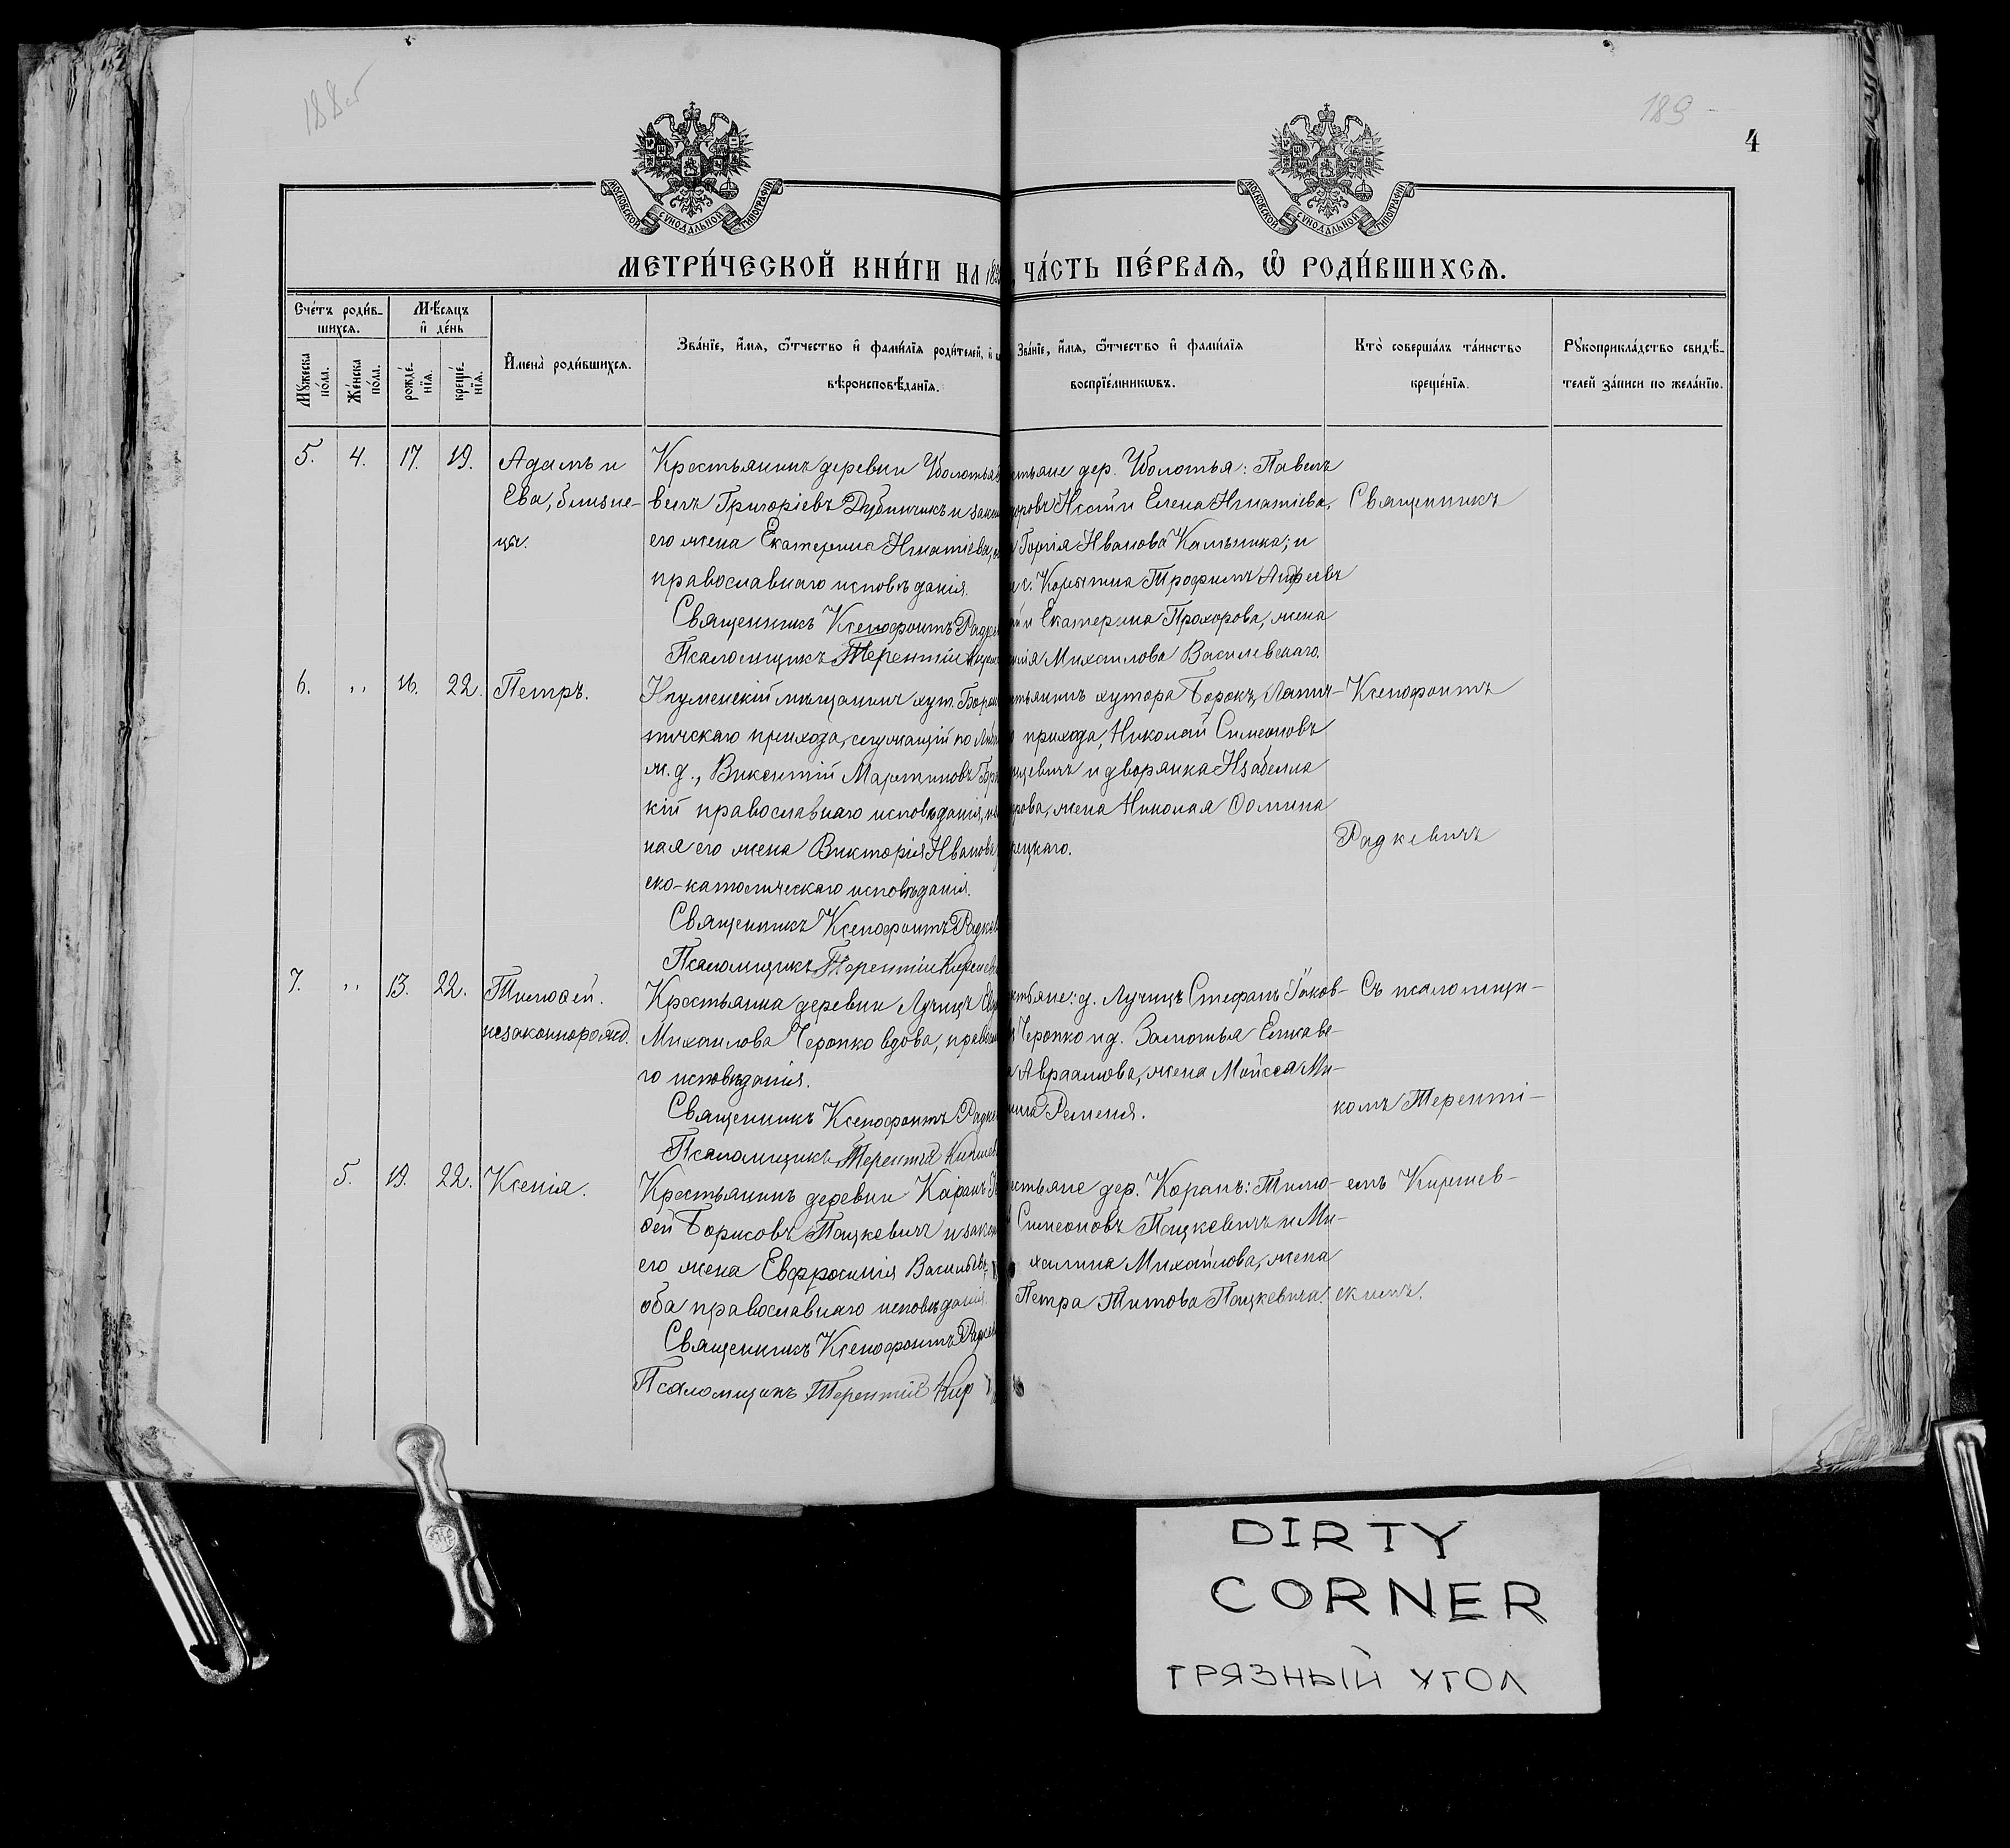 188об
189
4
МОСКОВСКОЙ СѴНОДАЛЬНОЙ ТИПОГРАФІИ
МОСКОВСКОЙ СѴНОДАЛЬНОЙ ТИПОГРАФІИ
МЕТРИ́ЧЕСКОЙ КНИ́ГИ НА 189
ЧА́СТЬ ПЕ́РВАѦ, Ѡ҆ РОДИ́ВШИХСѦ.
Сче́тъ роди́в-
шихсѧ.
Мѣ́сѧцъ
и҆ де́нь
Мꙋ́жеска
по́ла.
Же́нска
по́ла.
рожде́-
нїѧ.
креще́-
нїѧ.
И҆мена̀ роди́вшихсѧ.
Зва́нїе, и҆́мѧ, ѻ҆́тчество и҆ фами́лїѧ роди́телей, и҆
вѣроисповѣ́данїѧ.
Зва́нїе, и҆́мѧ, ѻ҆́тчество и҆ фами́лїѧ
воспрїе́мникѡвъ.
Кто̀ соверша́лъ та́инство
креще́нїѧ.
Рꙋкоприкла́дство свидѣ́-
телей за́писи по жела́нїю.
5. 4. 17. 19.
Адамъ и
Ева, близне-
цы.
Крестьянинъ деревни Уболотья
велъ Григоріевъ Дубинчикъ и закон
его жена Екатерина Игнатіева,
православнаго исповѣданія.
Священникъ Ксенофонтъ Радке
Псаломщикъ Терентій
стьяне дер. Уболотья: Павелъ
Елена Игнатіева,
Иванова Калинка; и
Трофимъ
и Екатерина Прохорова, жена
Михаилова Василевскаго.
Священникъ
6. ,, 16. 22.
Петръ.
Игуменскій мѣщанинъ хут. Борок
тическаго прихода, служащій по Либ
ж. д., Викентій Мартиновъ
кій православнаго исповѣданія,
ная его жена Викторія Иванова
ско-католическаго исповѣданія.
Священникъ Ксенофонтъ Радкев
Псаломщикъ Терентій Киршев
стьянинъ хутора Борокъ, Лати-
прихода, Николай Симеоновъ
цевичъ и дворянка Изабелла
рова, жена Николая Ѳомина
рецкаго.
Ксенофонтъ
Радкевичъ
7. ,, 13. 22.
Тимоѳей.
незаконнорожд.
Крестьянка деревни Лучицъ
Михаилова Черопко вдова, правосл
го исповѣданія.
Священникъ Ксенофонтъ Радке
Псаломщикъ Терентій Киршев
стьяне: д. Лучицъ Стефанъ Іаков-
Черопко и д. Замотья Елисаве-
Авраамова, жена Моисея Ми-
Ременя.
Съ псаломщи-
комъ Теренті-
5. 19. 22.
Ксенія.
Крестьянинъ деревни Каранъ
ѳей Борисовъ Пацкевичъ и закон
его жена Евфросинія Васильева,
оба православнаго исповѣданія.
Священникъ Ксенофонтъ Радкев
Псаломщикъ Терентій Кир
стьяне дер. Каранъ: Тимо-
Симеоновъ Пацкевичъ и Ми-
халина Михайлова, жена
Петра Титова Пацкевича.
емъ Киршев-
скимъ.
DIRTY
CORNER
ГРЯЗНЫЙ УГОЛ